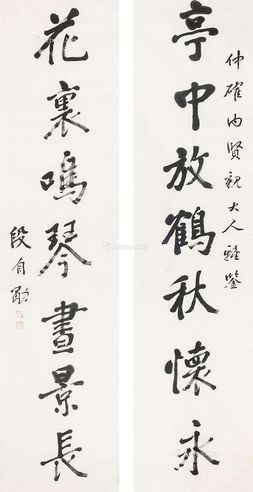 仲確内賢親大人雅鑒
亭中放鶴秋懷永
花裏鳴琴晝景長
段自勛